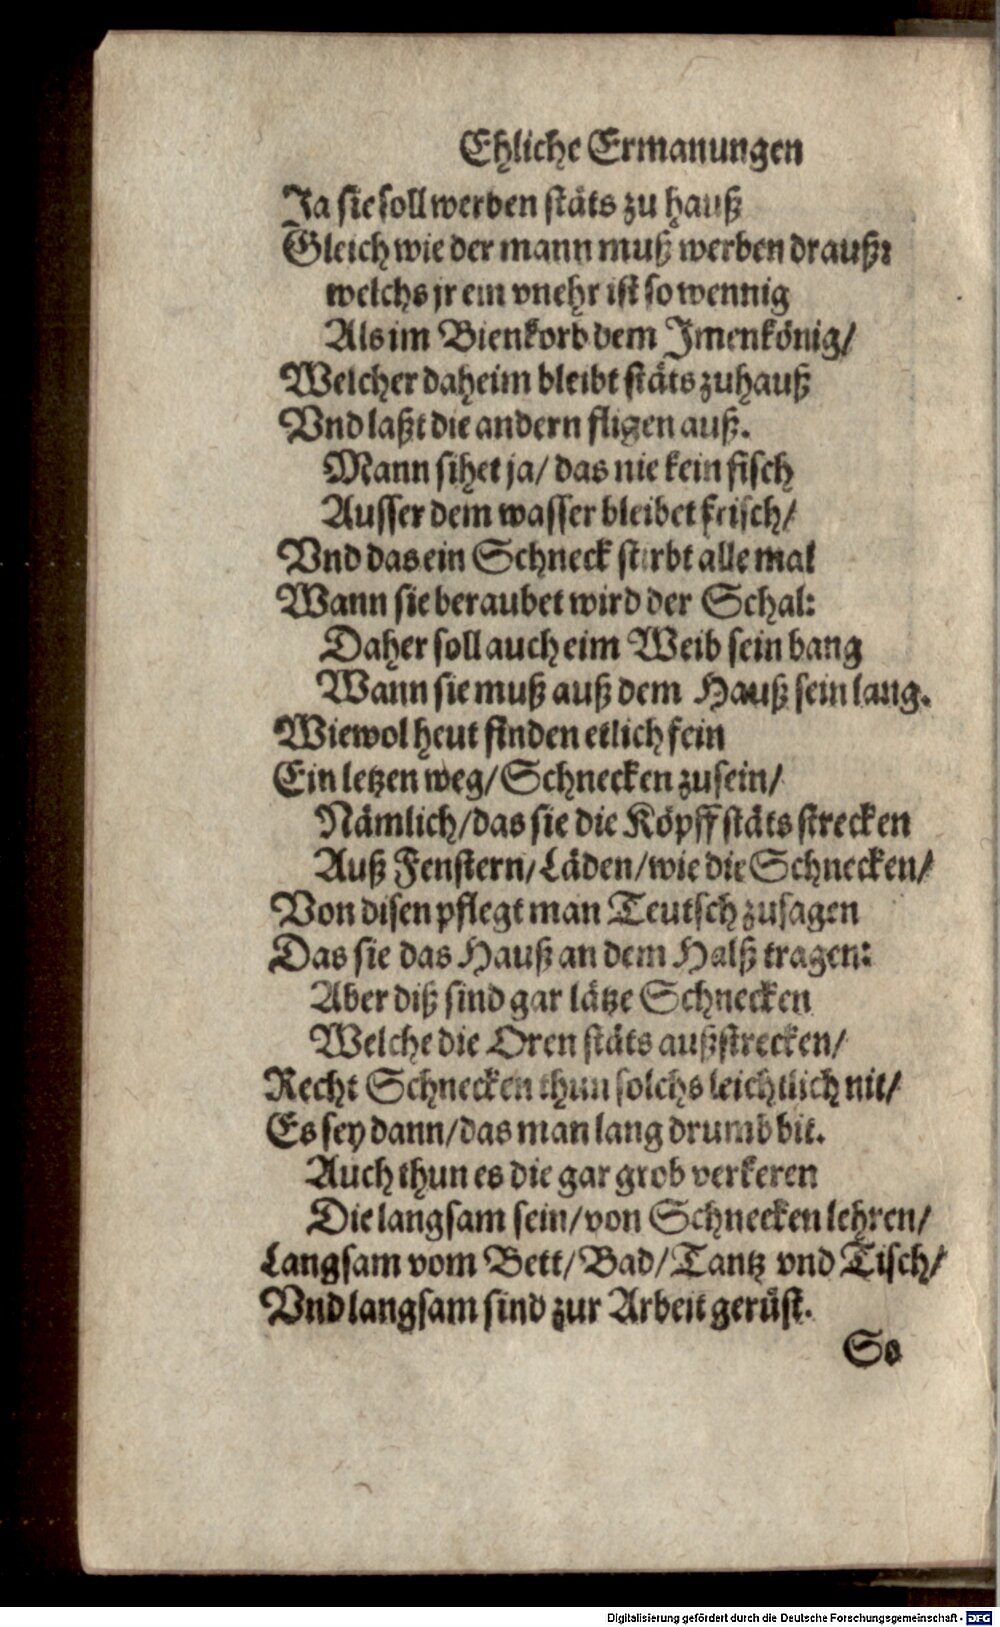 Ehliche Ermanungen
Ja sie soll werben stäts zu hauß
Gleich wie der mann muß werben drauß:
welchs jr ein vnehr ist so wennig
Als im Bienkorb dem Jmenkönig/
Welcher daheim bleibt stäts zuhauß
Vnd laßt die andern fligen auß.
Mann sihet ja/ das nie kein fisch
Ausser dem wasser bleibet frisch/
Vnd das ein Schneck stirbt alle mal
Wann sie beraubet wird der Schal:
Daher soll auch eim Weib sein bang
Wann sie muß auß dem Hauß sein lang.
Wiewol heut finden etlich fein
Ein letzen weg/ Schnecken zusein/
Nämlich/das sie die Köpff stäts strecken
Auß Fenstern/Läden/wie die Schnecken/
Von disen pflegt man Teutsch zusagen
Das sie das Hauß an dem Halß tragen:
Aber diß sind gar lätze Schnecken
Welche die Oren stäts außstrecken/
Recht Schnecken thun solchs leichtlich nit/
Es sey dann/das man lang drumb bit.
Auch thun es die gar grob verkeren
Die langsam sein/von Schnecken lehren/
Langsam vom Bett/Bad/Tantz vnd Tisch/
Vnd langsam sind zur Arbeit gerüst.
So
Digitalisierung gefördert durch die Deutsche Forschungsgemeinschaft - DFG